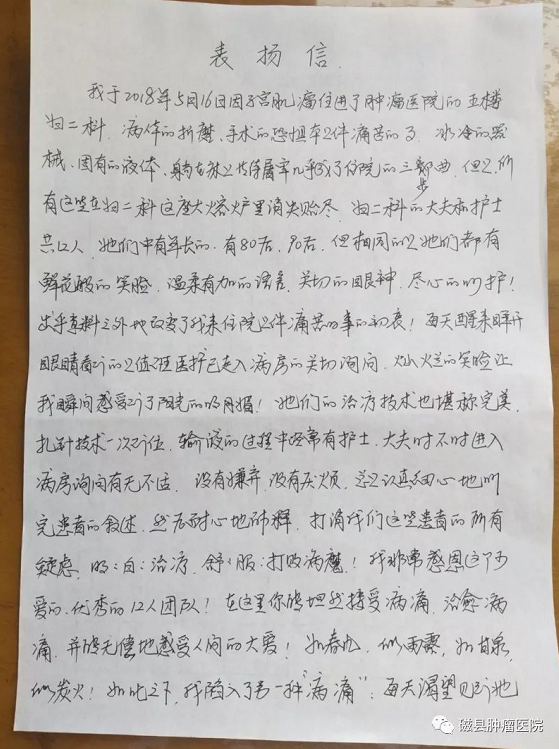 表扬信.
我于2018年5月16日因子宫肌瘤住进了肿瘤医院的五楼
妇二科. 病体的折磨、手术的恐惧本是件痛苦的事. 冰冷的器
械、固有的液体、躺在床上 几乎成了住院的三步曲. 但是, 所
有这些在妇二科这座大熔炉里消失殆尽. 妇二科的大夫和护士
共12人, 她们中有年长的. 有80后. 90后. 但相同的是她们都有
鲜花般的笑脸. 温柔有加的语言. 关切的眼神. 尽心的呵护!
出乎意料之外地改变了我来住院是件痛苦的事的初衷! 每天醒来睁开
眼睛看到的是值班医护已走入病房的关切询问. 灿烂的笑脸让
我瞬间感受到了阳光的明媚! 她们的治疗技术也堪称完美.
扎针技术一次到位. 输液的过程中经常有护士. 大夫时不时进入
病房询问有无不适. 没有嫌弃. 没有厌烦. 总是认真细心地听
完患者的叙述. 然后耐心地解释. 打消我们这些患者的所有
疑虑. 明明白白治疗. 舒舒服服打败病魔! 我非常感恩这个
爱的. 优秀的12人团队! 在这里你能坦然接受病痛. 治愈病
痛. 并能无偿地感受人间的大爱! 如春风, 似雨露, 如甘泉,
似炭火! 如此之下, 我陷入了另一种"病痛": 每天渴望见到她
磁县肿瘤医院